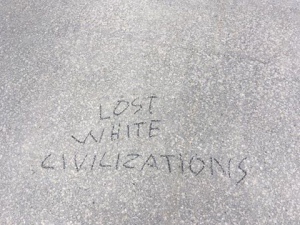 LOST
WHITE
CIVILIZATIONS